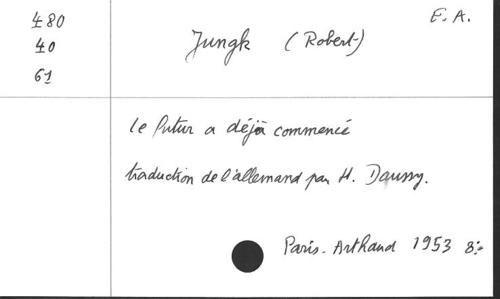 480
40
61
E. A.
Jungk (Robert)
Le futur a déjà commencé
traduction de l'allemand par H. Daussy.
Paris. Arthaud 1953 8:-